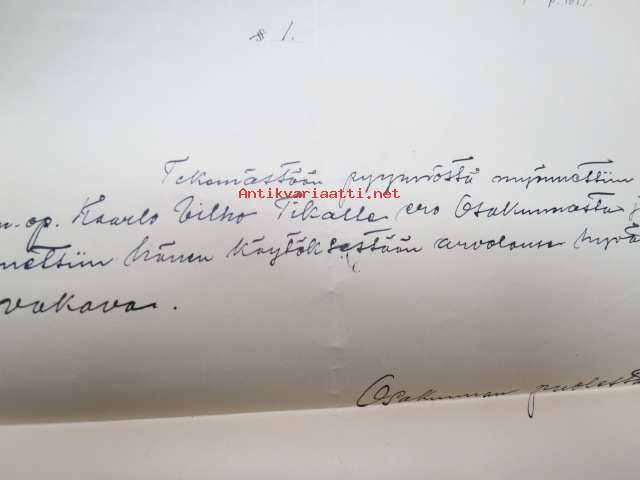 p. 1917.
§ 1.
Tekemästään pyynnöstä myönnettiin
n. op. Kaarlo Vilho Tikalle ero Osakunnasta j
nettiin hänen käytöksestään arvolause hyvä
vakava.
Osakunnan puolesta
Antikvariaatti.net